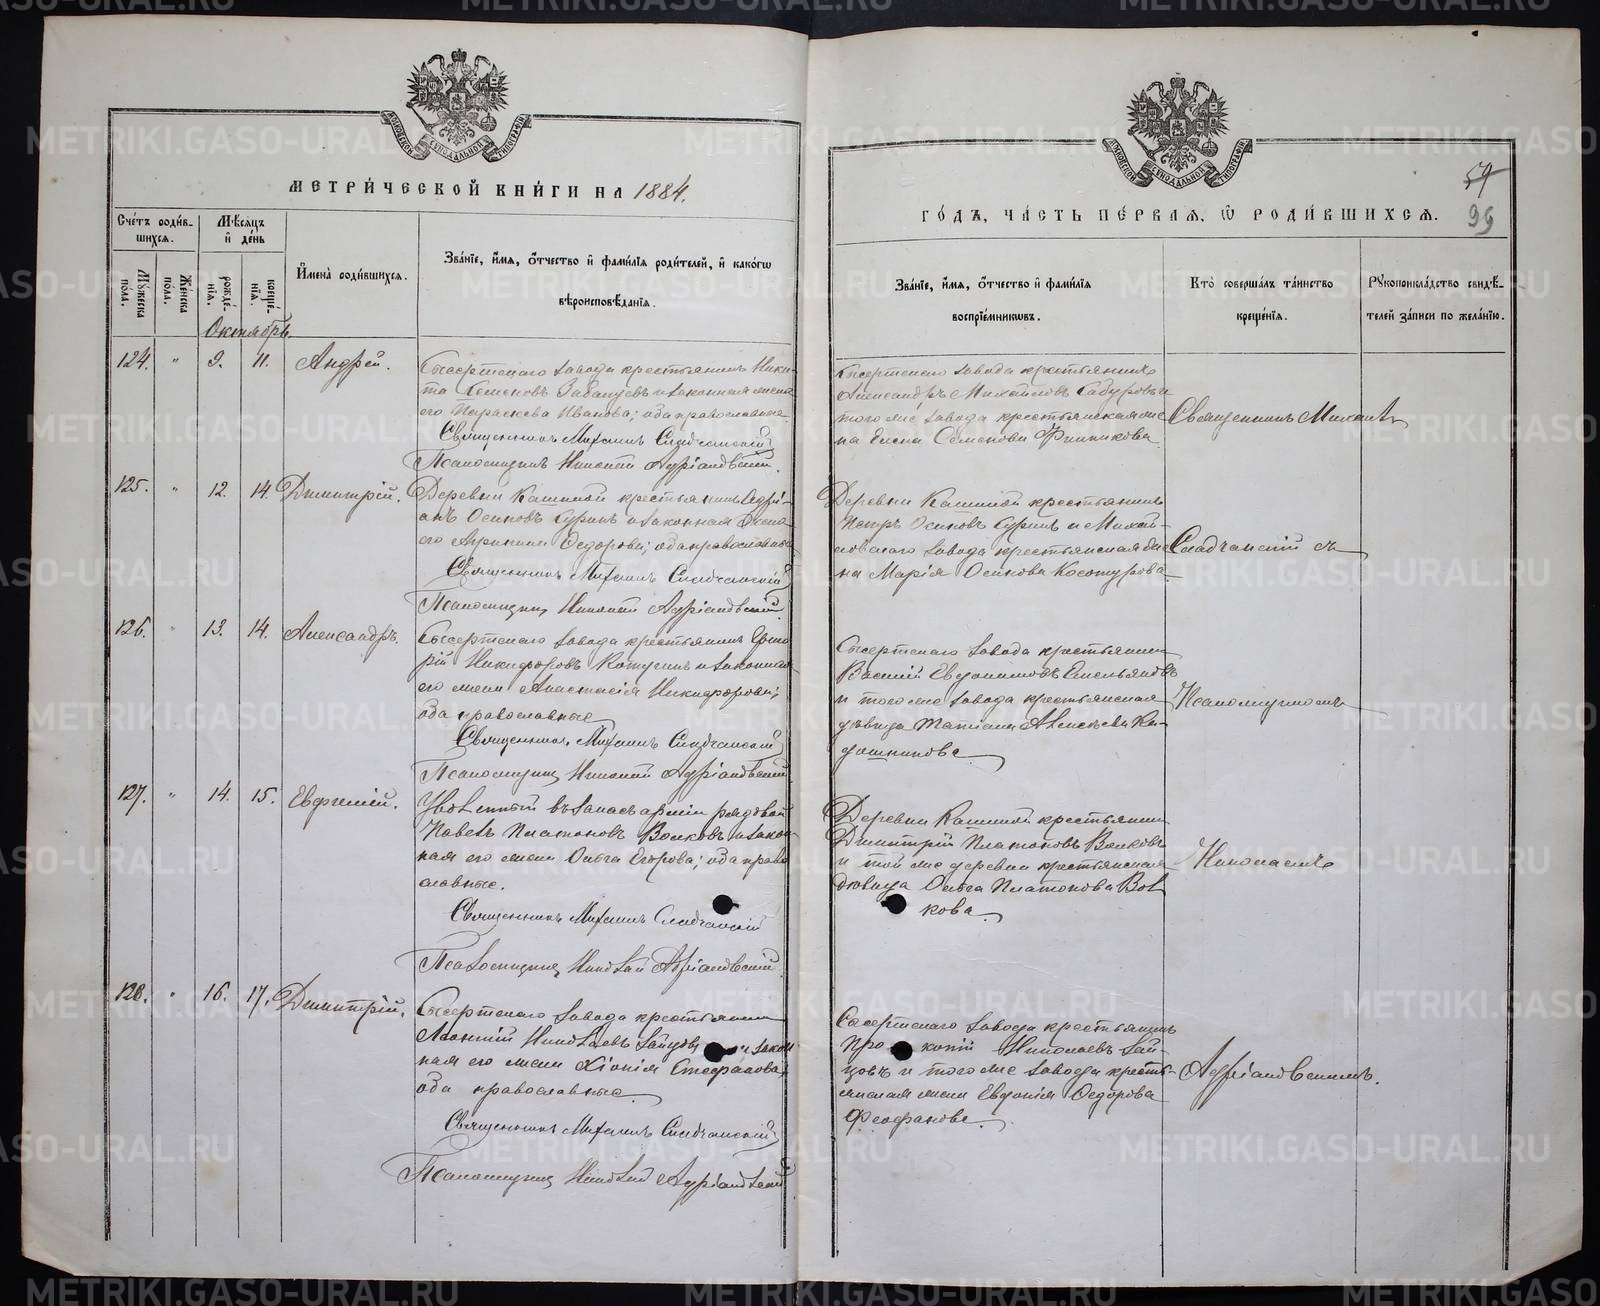 МЕТРИ́ЧЕСКОЙ КНИ́ГИ НА 1884.
Счетъ роди́в-
шихся.
Мѣсяцъ
и день
Имена родившихся.
Зва́нїе, и́мя, о́тчество и фами́лїя роди́телей, и како́гѡ
вѣроисповѣ́данїя.
Мꙋжеска
пола.
Же́нска
пола.
рожде́-
нїя.
креще́-
нїя.
Октябрь.
124. " 9. 11. Андрей.
Сысертскаго завода крестьянинъ Ники-
та Семеновъ и законная жена
его Параскева Иванова; оба православные
Священникъ Михаилъ Сладчанский
Псаломщикъ Николай Адріановскій.
125. " 12. 14. Димитрій.
Деревни Кашиной крестьянинъ Адрі-
анъ Осиповъ Суринъ и законная жена
его Ѳедорова; оба православные
Священникъ Михаилъ Сладчанский
Псаломщикъ Николай Адріановскій
126. " 13. 14. Александръ.
Сысертскаго завода крестьянинъ Григо-
рій Никифоровъ и законная
его жена Анастасія Никифорова;
оба православные
Священникъ Михаилъ Сладчанский
Псаломщикъ Николай Адріановскій
127. " 14. 15. Евфимій.
Уволенный въ запасъ арміи рядовой
Павелъ Платоновъ Волковъ и закон-
ная его жена Ольга Егорова; оба право-
славные.
Священникъ Михаилъ Сладчанский
Псаломщикъ Николай Адріановскій
128. " 16. 17. Димитрій.
Сысертскаго завода крестьянинъ
Леонтій Николаевъ Зайцовъ и закон-
ная его жена Хіонія Стефанова;
оба православные.
Священникъ Михаилъ Сладчанский
Псаломщикъ Николай Адріановскій
ГО́ДЪ, ЧА́СТЬ ПЕ́РВАЯ, Ѽ РОДИ́ВШИХСЯ.
57
99
Зва́нїе, и́мя, о́тчество и фами́лїя
воспрїе́мникѡвъ.
Кто̀ соверша́лъ та́инство
креще́нїя.
Рꙋкоприкла́дство свидѣ́-
телей за́писи по жела́нїю.
Сысертскаго завода крестьянинъ
Александръ Михайловъ и
того же завода крестьянская же-
на Елена Семенова
Священникъ Михаилъ
Деревни Кашиной крестьянинъ
Петръ Осиповъ Суринъ и Михай-
ловскаго завода крестьянская же-
на Марія Осипова Косотурова.
Сладчанский съ
Сысертскаго завода крестьянинъ
Василій Евдокимовъ Емельяновъ
и того же завода крестьянская
дѣвица Татіана Алексѣева
Псаломщикомъ
Деревни Кашиной крестьянинъ
Димитрій Платоновъ Волковъ
и той же деревни крестьянская
дѣвица Ольга Платонова Вол-
кова.
Николаемъ
Сысертскаго завода крестьянинъ
Прокопій Николаевъ Зай-
цовъ и того же завода кресть-
янская жена Евдокія Ѳедорова
Феофанова.
Адріановскимъ.
METRIKI.GASO-URAL.RU